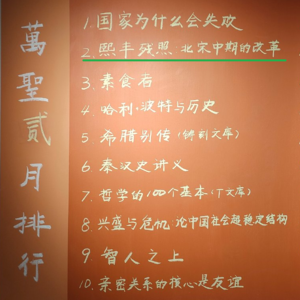 萬聖貳月排行
1.国家为什么会失败
2.熙丰残照:北宋中期的改革
3.素食者
4.哈利·波特与历史
5.希腊别传(傅刻文库)
6.秦汉史讲义
7.哲学的100个基本(T文库)
8.兴盛与危机 论中国社会超稳定结构
9.智人之上
10.亲密关系的核心是友谊